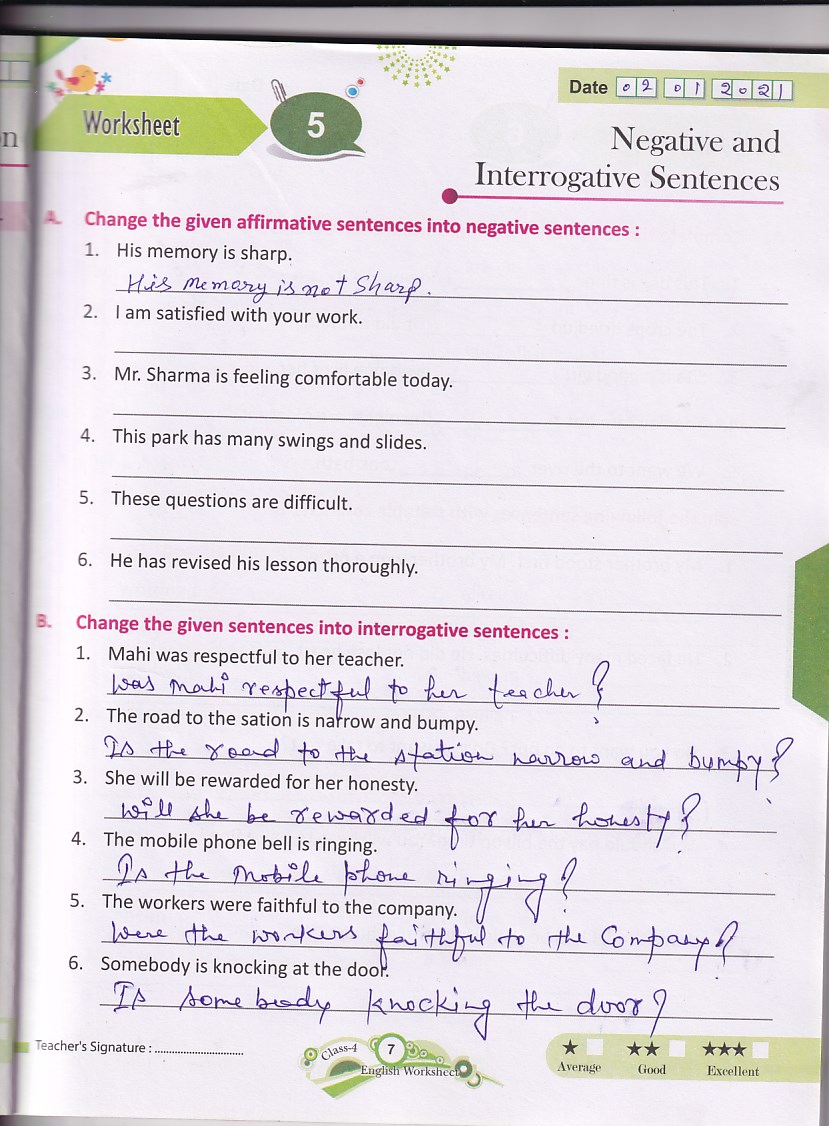 Date 02 01 2021
Worksheet 5
n
Negative and
Interrogative Sentences
A. Change the given affirmative sentences into negative sentences :
1. His memory is sharp.
His memory is not Sharp.
2. I am satisfied with your work.
3. Mr. Sharma is feeling comfortable today.
4. This park has many swings and slides.
5. These questions are difficult.
6. He has revised his lesson thoroughly.
B. Change the given sentences into interrogative sentences :
1. Mahi was respectful to her teacher.
Was Mahi respectful to her teacher?
2. The road to the sation is narrow and bumpy.
Is the road to the station narrow and bumpy?
3. She will be rewarded for her honesty.
Will she be rewarded for her honesty?
4. The mobile phone bell is ringing.
Is the Mobile phone ringing?
5. The workers were faithful to the company.
Were the workers faithful to the Company?
6. Somebody is knocking at the door.
Is somebody knocking the door?
Teacher's Signature : ..............................
Class-4 7 English Worksheet
Average Good Excellent